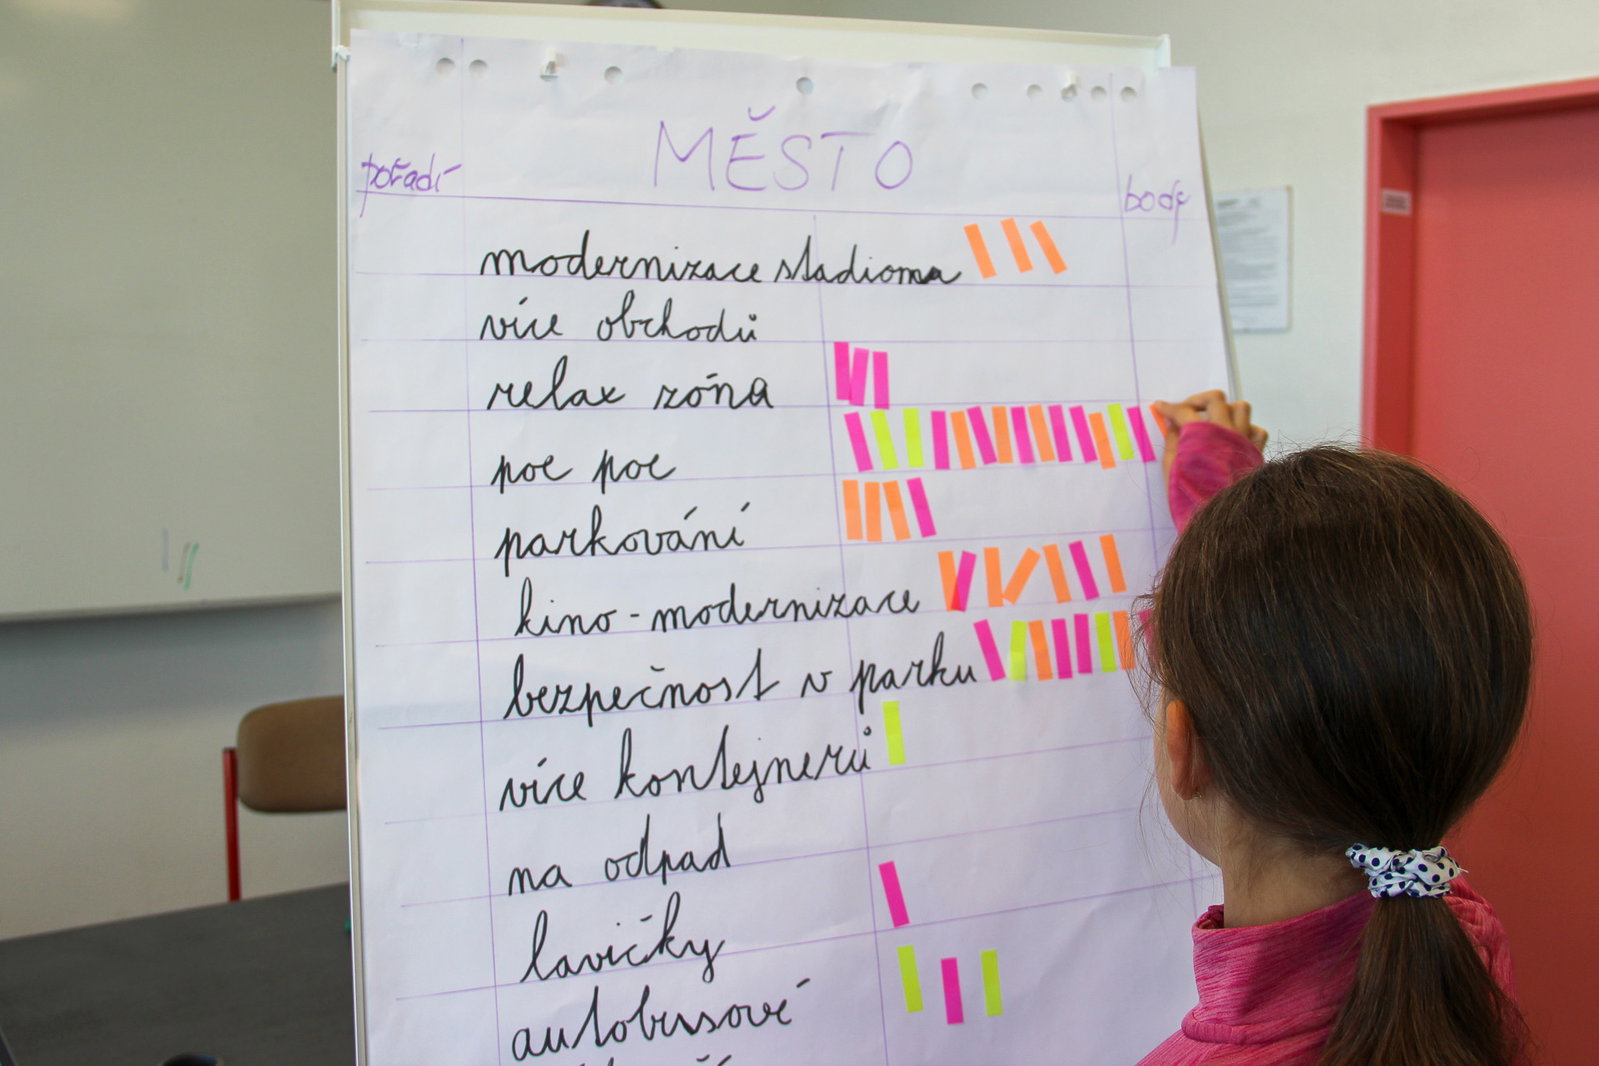 MĚSTO
pořadí
body
modernizace stadiona
více obchodů
relax zóna
poe poe
parkování
kino - modernizace
bezpečnost v parku
více kontejnerů
na odpad
lavičky
autobusové